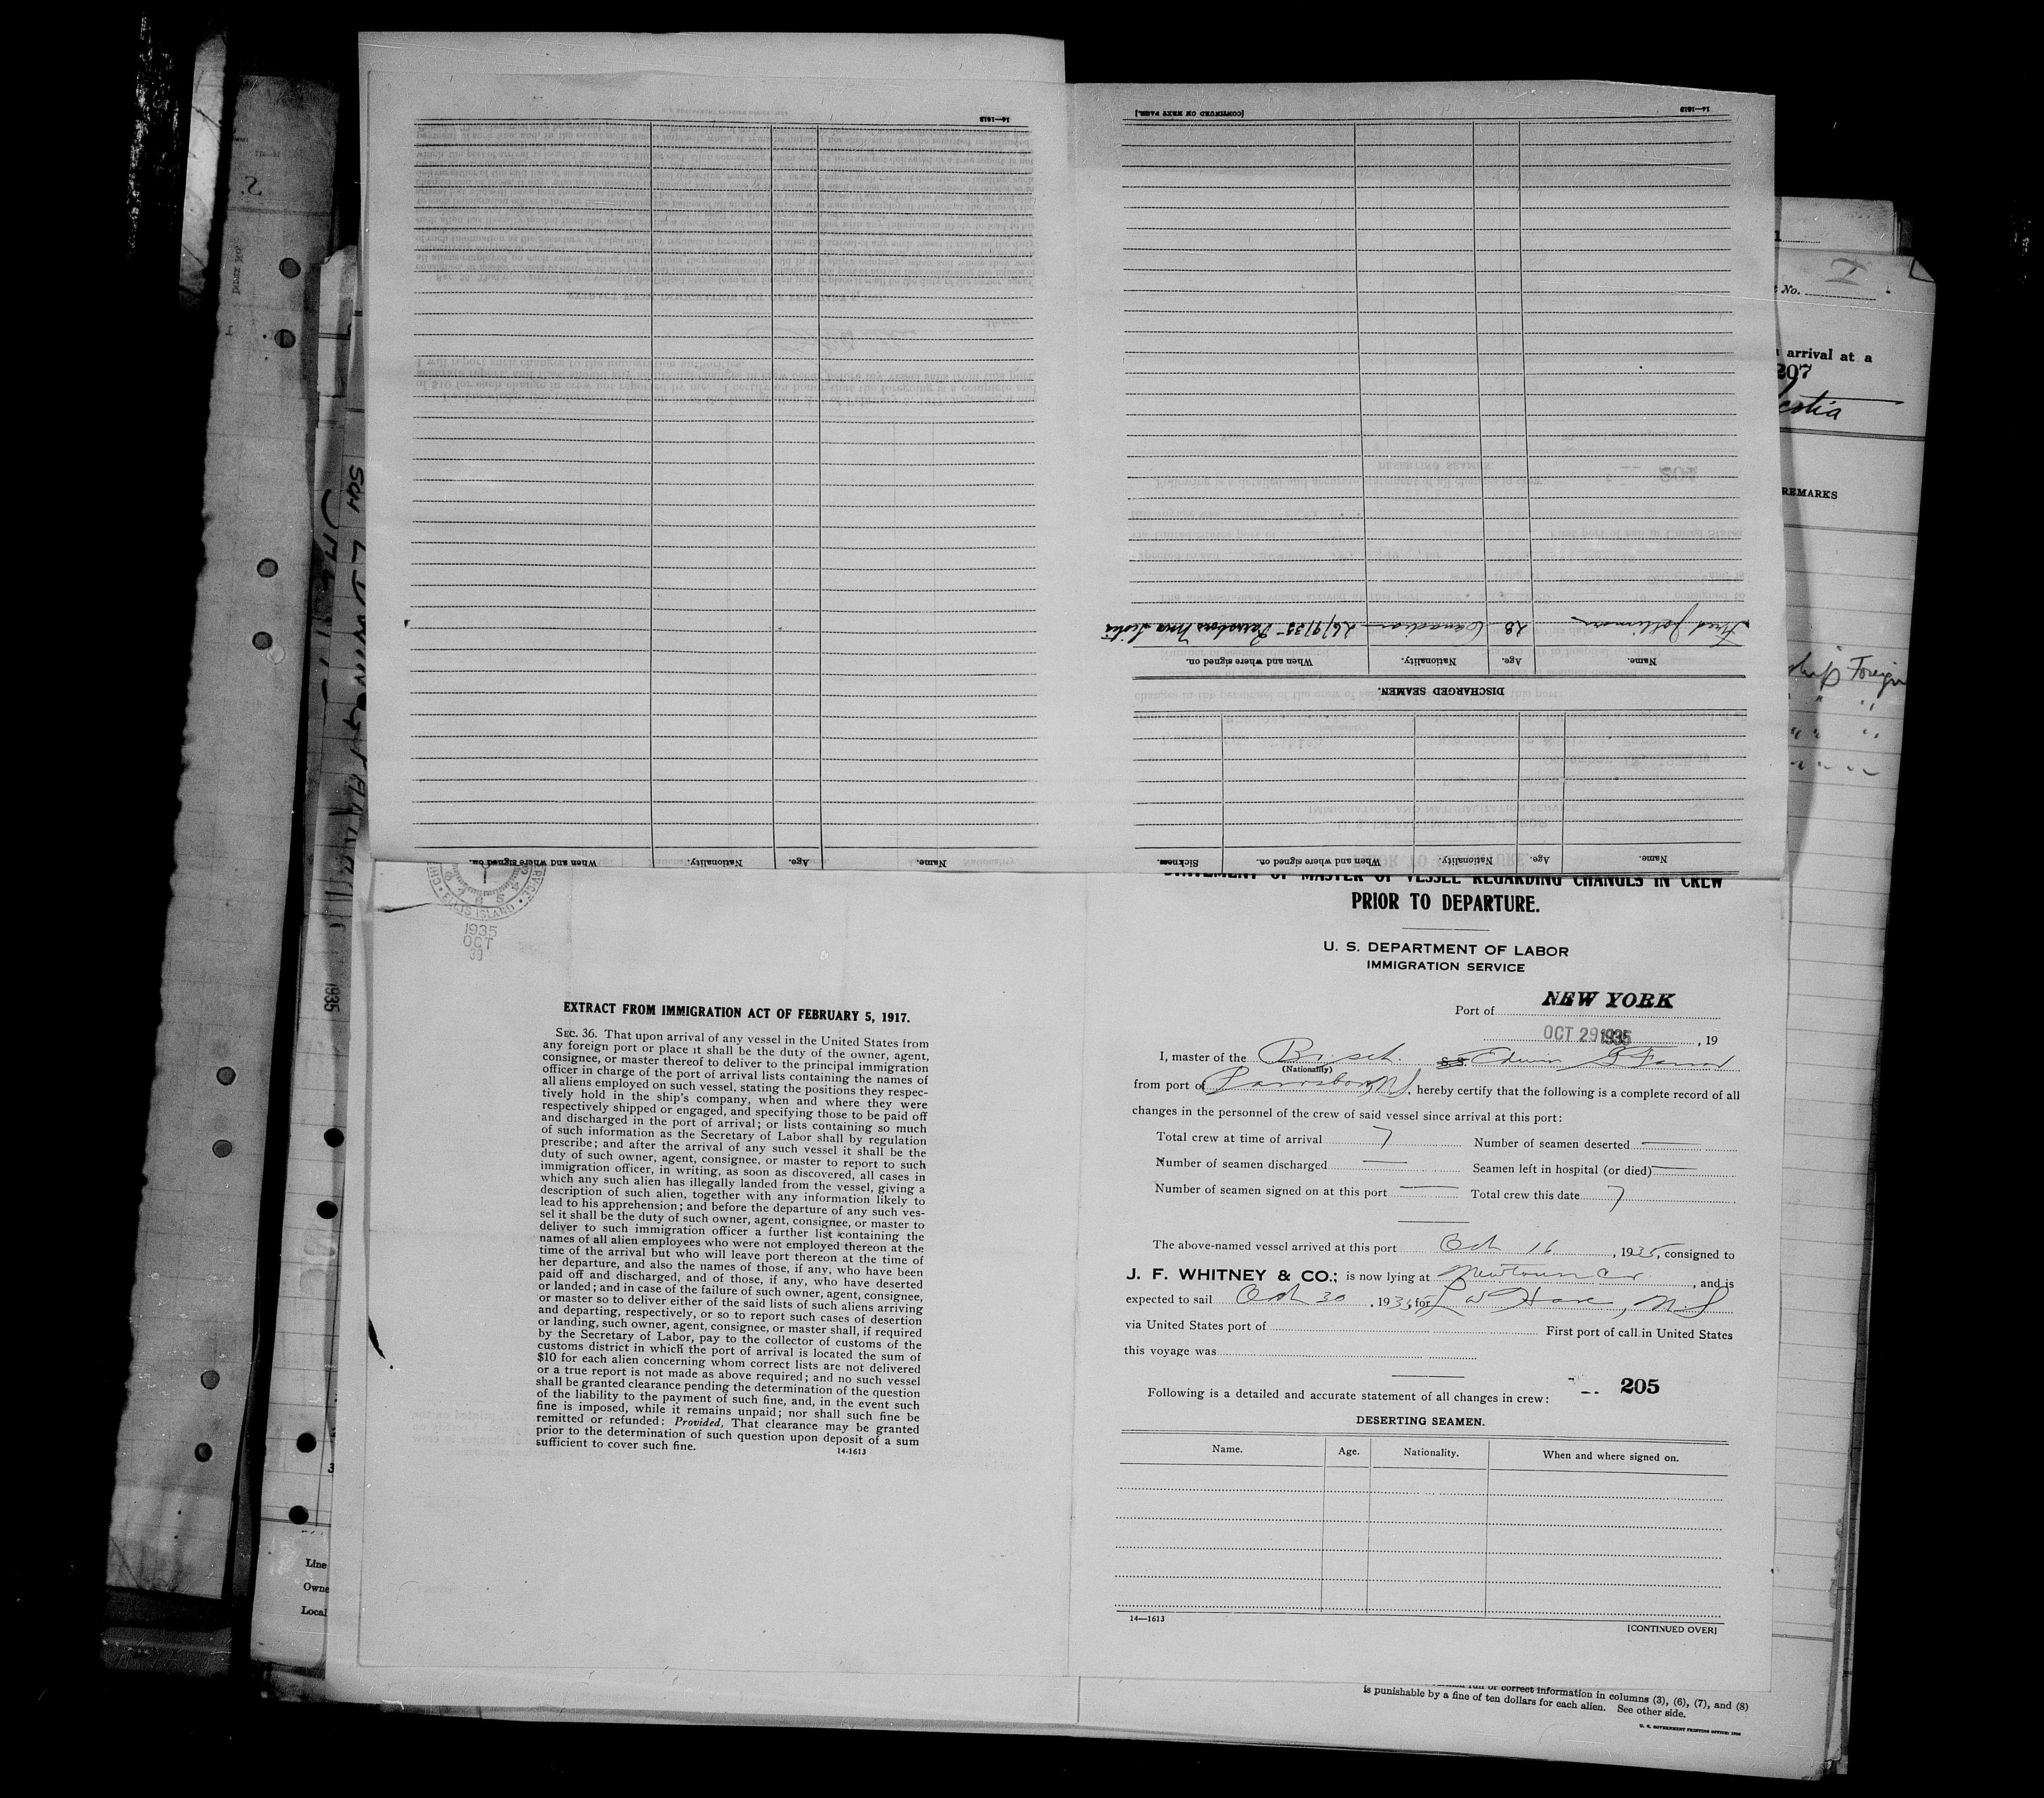 [CONTINUED ON NEXT PAGE.]
14—1613
14—1613
Fred
28
Canadian
26/9/35
Parrsboro Nova Scotia
Name.
Age.
Nationality.
When and where signed on.
DISCHARGED SEAMEN.
Name.
Age.
Nationality.
When and where signed on.
Sickness.
Name.
Age.
Nationality.
When and where signed on.
ELLIS ISLAND
1935
OCT
30
EXTRACT FROM IMMIGRATION ACT OF FEBRUARY 5, 1917.
SEC. 36. That upon arrival of any vessel in the United States from
any foreign port or place it shall be the duty of the owner, agent,
consignee, or master thereof to deliver to the principal immigration
officer in charge of the port of arrival lists containing the names of
all aliens employed on such vessel, stating the positions they respec-
tively hold in the ship's company, when and where they were
respectively shipped or engaged, and specifying those to be paid off
and discharged in the port of arrival; or lists containing so much
of such information as the Secretary of Labor shall by regulation
prescribe; and after the arrival of any such vessel it shall be the
duty of such owner, agent, consignee, or master to report to such
immigration officer, in writing, as soon as discovered, all cases in
which any such alien has illegally landed from the vessel, giving a
description of such alien, together with any information likely to
lead to his apprehension; and before the departure of any such ves-
sel it shall be the duty of such owner, agent, consignee, or master to
deliver to such immigration officer a further list containing the
names of all alien employees who were not employed thereon at the
time of the arrival but who will leave port thereon at the time of
her departure, and also the names of those, if any, who have been
paid off and discharged, and of those, if any, who have deserted
or landed; and in case of the failure of such owner, agent, consignee,
or master so to deliver either of the said lists of such aliens arriving
and departing, respectively, or so to report such cases of desertion
or landing, such owner, agent, consignee, or master shall, if required
by the Secretary of Labor, pay to the collector of customs of the
customs district in which the port of arrival is located the sum of
$10 for each alien concerning whom correct lists are not delivered
or a true report is not made as above required; and no such vessel
shall be granted clearance pending the determination of the question
of the liability to the payment of such fine, and, in the event such
fine is imposed, while it remains unpaid; nor shall such fine be
remitted or refunded: Provided, That clearance may be granted
prior to the determination of such question upon deposit of a sum
sufficient to cover such fine.
14-1613
STATEMENT OF MASTER OF VESSEL REGARDING CHANGES IN CREW
PRIOR TO DEPARTURE.
U. S. DEPARTMENT OF LABOR
IMMIGRATION SERVICE
Port of NEW YORK
OCT 29 1935, 19
I, master of the Br. sch. S.S. Edwin G Farrar
(Nationality)
from port of Parrsboro NS, hereby certify that the following is a complete record of all
changes in the personnel of the crew of said vessel since arrival at this port:
Total crew at time of arrival 7 Number of seamen deserted —
Number of seamen discharged — Seamen left in hospital (or died) —
Number of seamen signed on at this port — Total crew this date 7
The above-named vessel arrived at this port Oct 16, 1935, consigned to
J. F. WHITNEY & CO.; is now lying at Newtown Cr, and is
expected to sail Oct 30, 1935, for L W Have, N S
via United States port of First port of call in United States
this voyage was
Following is a detailed and accurate statement of all changes in crew:
205
DESERTING SEAMEN.
Name. Age. Nationality. When and where signed on.
14—1613
[CONTINUED OVER]
No.
arrival at a
207
REMARKS
Foreign
1935
Line
Owne
Local
correct information in columns (3), (6), (7), and (8)
is punishable by a fine of ten dollars for each alien. See other side.
U. S. GOVERNMENT PRINTING OFFICE